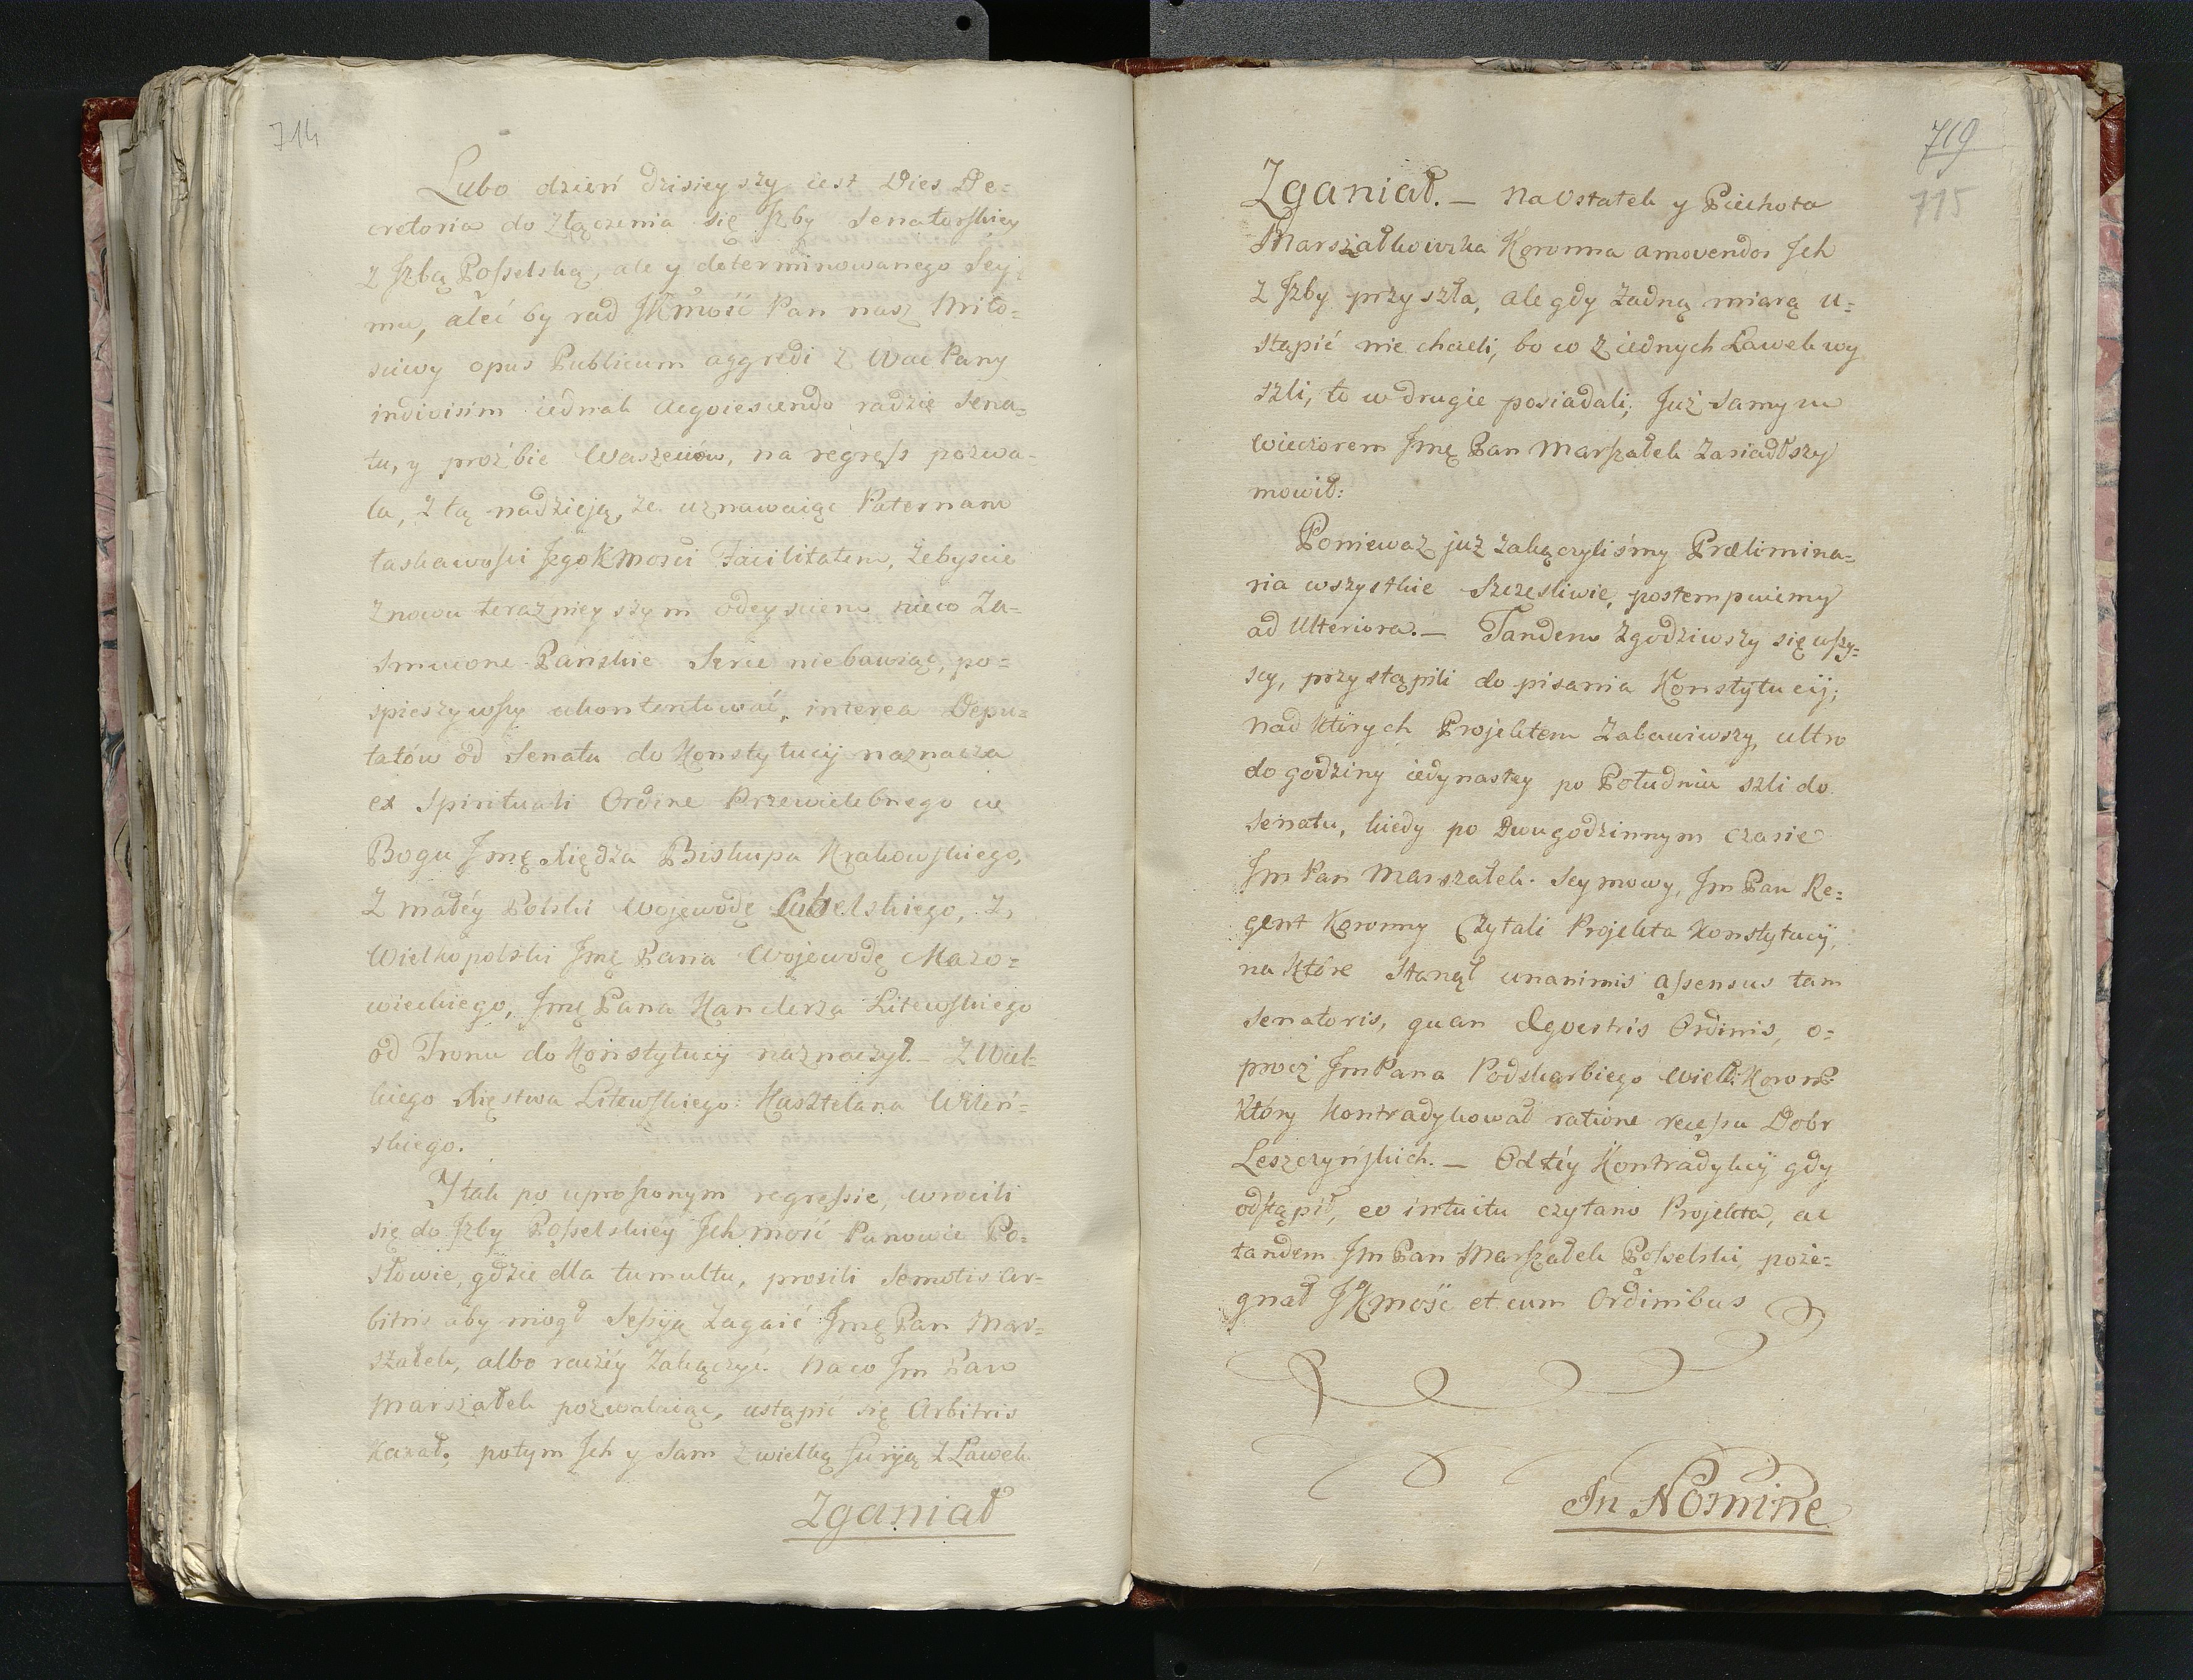 714
Lubo dzień dzisieyszy iest Dies De=
cretoria do złączenia się Jzby Senatorskiey
z Jzbą Poselską, ale y determinowanego Sey=
mu, aleć by rad JKmość Pan nasz Miło=
sciwy opus Publicum aggredi z Wac Pany
indivisim iednak acquiescendo radzie Sena=
tu, y proźbie Waszeciów, na regress pozwa-
la, z tą nadzieją, że uznawaiąc Paternam
łaskawości Jego Kmości Facilitatem, żebyscie
znowu teraznieyszym odeysciem nieco Za=
smucone Pańskie Serce niebawiąc, po=
spieszywszy ukontentować, interea Depu=
tatów od Senatu do Konstytucij naznacza
ex Spirituali Ordine Przewielebnego w
Bogu Jmę Xiędza Biskupa Krakowskiego,
z małéy Polski Wojewodę Lubelskiego, z
Wielkopolski Jmę Pana Wojewodę Mazo=
wieckiego, Jmę Pana Kanclerza Litewskiego
od Tronu do Konstytucij naznaczył. – Z Wiel-
kiego Xięstwa Litewskiego: Kasztelana Wileń=
skiego.
Y tak po uproszonym regressie, wrocili
się do Jzby Poselskiey Jchmość Panowie Po=
słowie, gdzie dla tumultu, prosili semotis ar-
bitris aby mogł Sessyją zagaić Jmę Pan Mar=
szałek, albo raczéy zakączyć. Na co Jm Pan
Marszałek pozwalaiąc, ustąpić się Arbitris
Kazał, potym Jch y Sam z wielką furyją z Ławek
Zganiał
719
715
Zganiał. – Na Ostatek y Piechota
Marszałkowska Koronna amovendos Jch
z Jzby przyszła, ale gdy żadną miarą u=
stąpić nie chcieli, bo co z iednych Ławek wy
szli, to w drugie posiadali; Już samym
wieczorem Jmę Pan Marszałek Zasiadłszy
mowił:
Ponieważ już zakączyliśmy Prælimina=
ria wszystkie szczesliwie, postempuiemy
ad Ulteriora. – Tandem zgodziwszy się wszy=
scy, przystąpili do pisania Konstytucij;
nad których Projektem Zabawiwszy, ultro
do godziny iedynastey po Południu szli do
Senatu, kiedy po Dwugodzinnym czasie
Jm Pan Marszałek Seymowy, Jm Pan Re=
gent Koronny Czytali Projekta Konstytucij,
na które Stanął unanimis assensus tam
Senatoris, quan Eqvestris Ordinis, o=
procz Jm Pana Podskarbiego Wielk: Koron:
Który Kontradykował ratione recessu Dobr
Leszczyńskich. – Od téy Kontradykcij gdy
odstąpił, eo intuitu czytano Projekta, ac
tandem Jm Pan Marszałek Poselski, poże=
gnał JKmość et cum Ordinibus
In Nomine